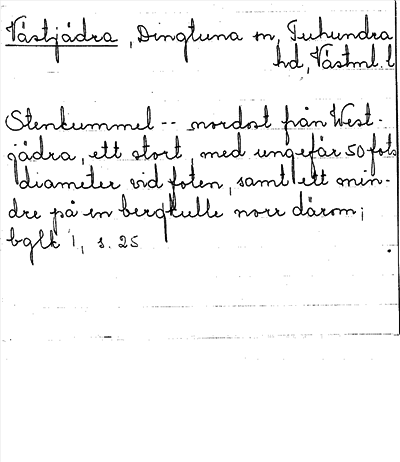 Västjädra, Dingtuna sn, Tuhundra
hd, Västml. l
Stenkummel -- nordost från West-
jädra, ett stort, med ungefär 50 fots
diameter vid foten, samt ett min-
dre på en bergkulle norr därom;
bglk 1, s. 25